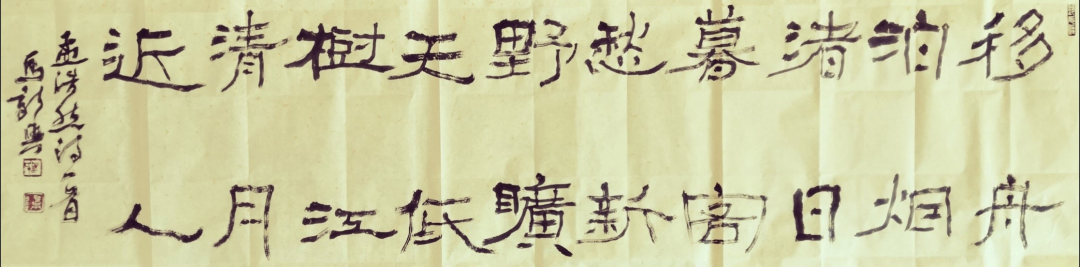 移舟
泊烟
渚日
暮客
愁新
野曠
天低
樹江
清月
近人
孟浩然诗一首